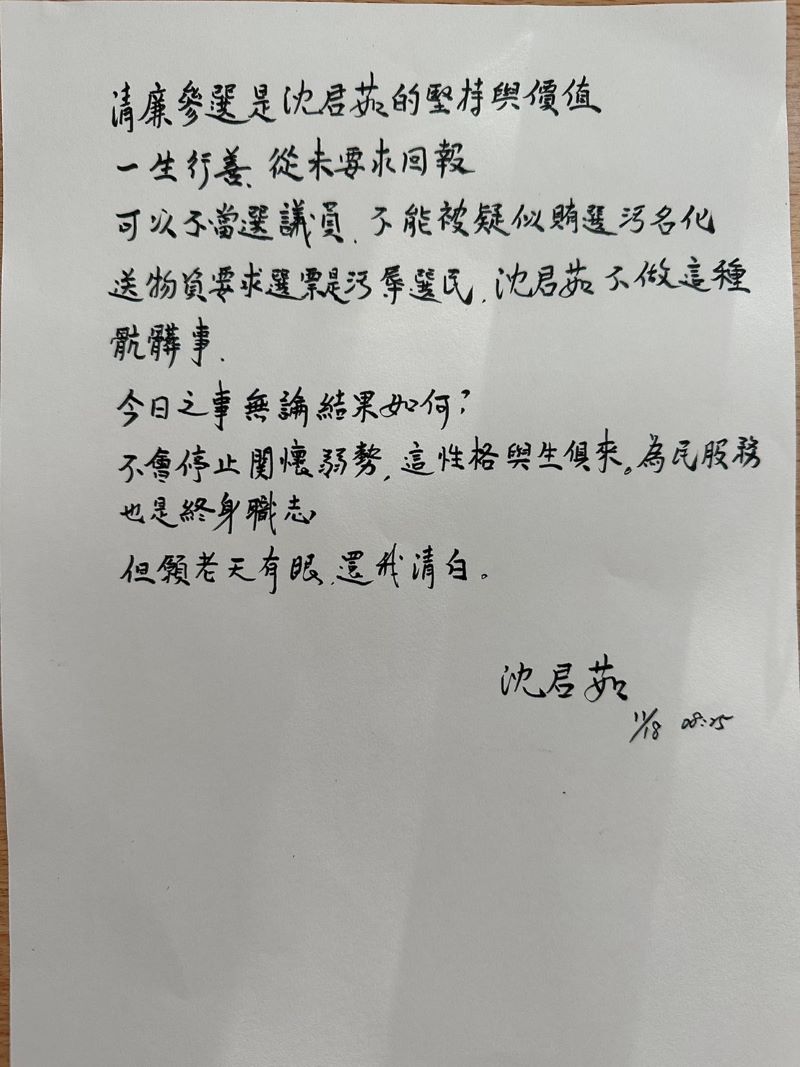 清廉參選是沈君茹的堅持與價值
一生行善、從未要求回報
可以不當選議員、不能被疑似賄選污名化
送物資要求選票是污辱選民、沈君茹不做這種
骯髒事、
今日之事無論結果如何?
不會停止関懷弱勢,這性格與生俱來。為民服務
也是終身職志
但願老天有眼、還我清白。
沈君茹
11/18 08:25